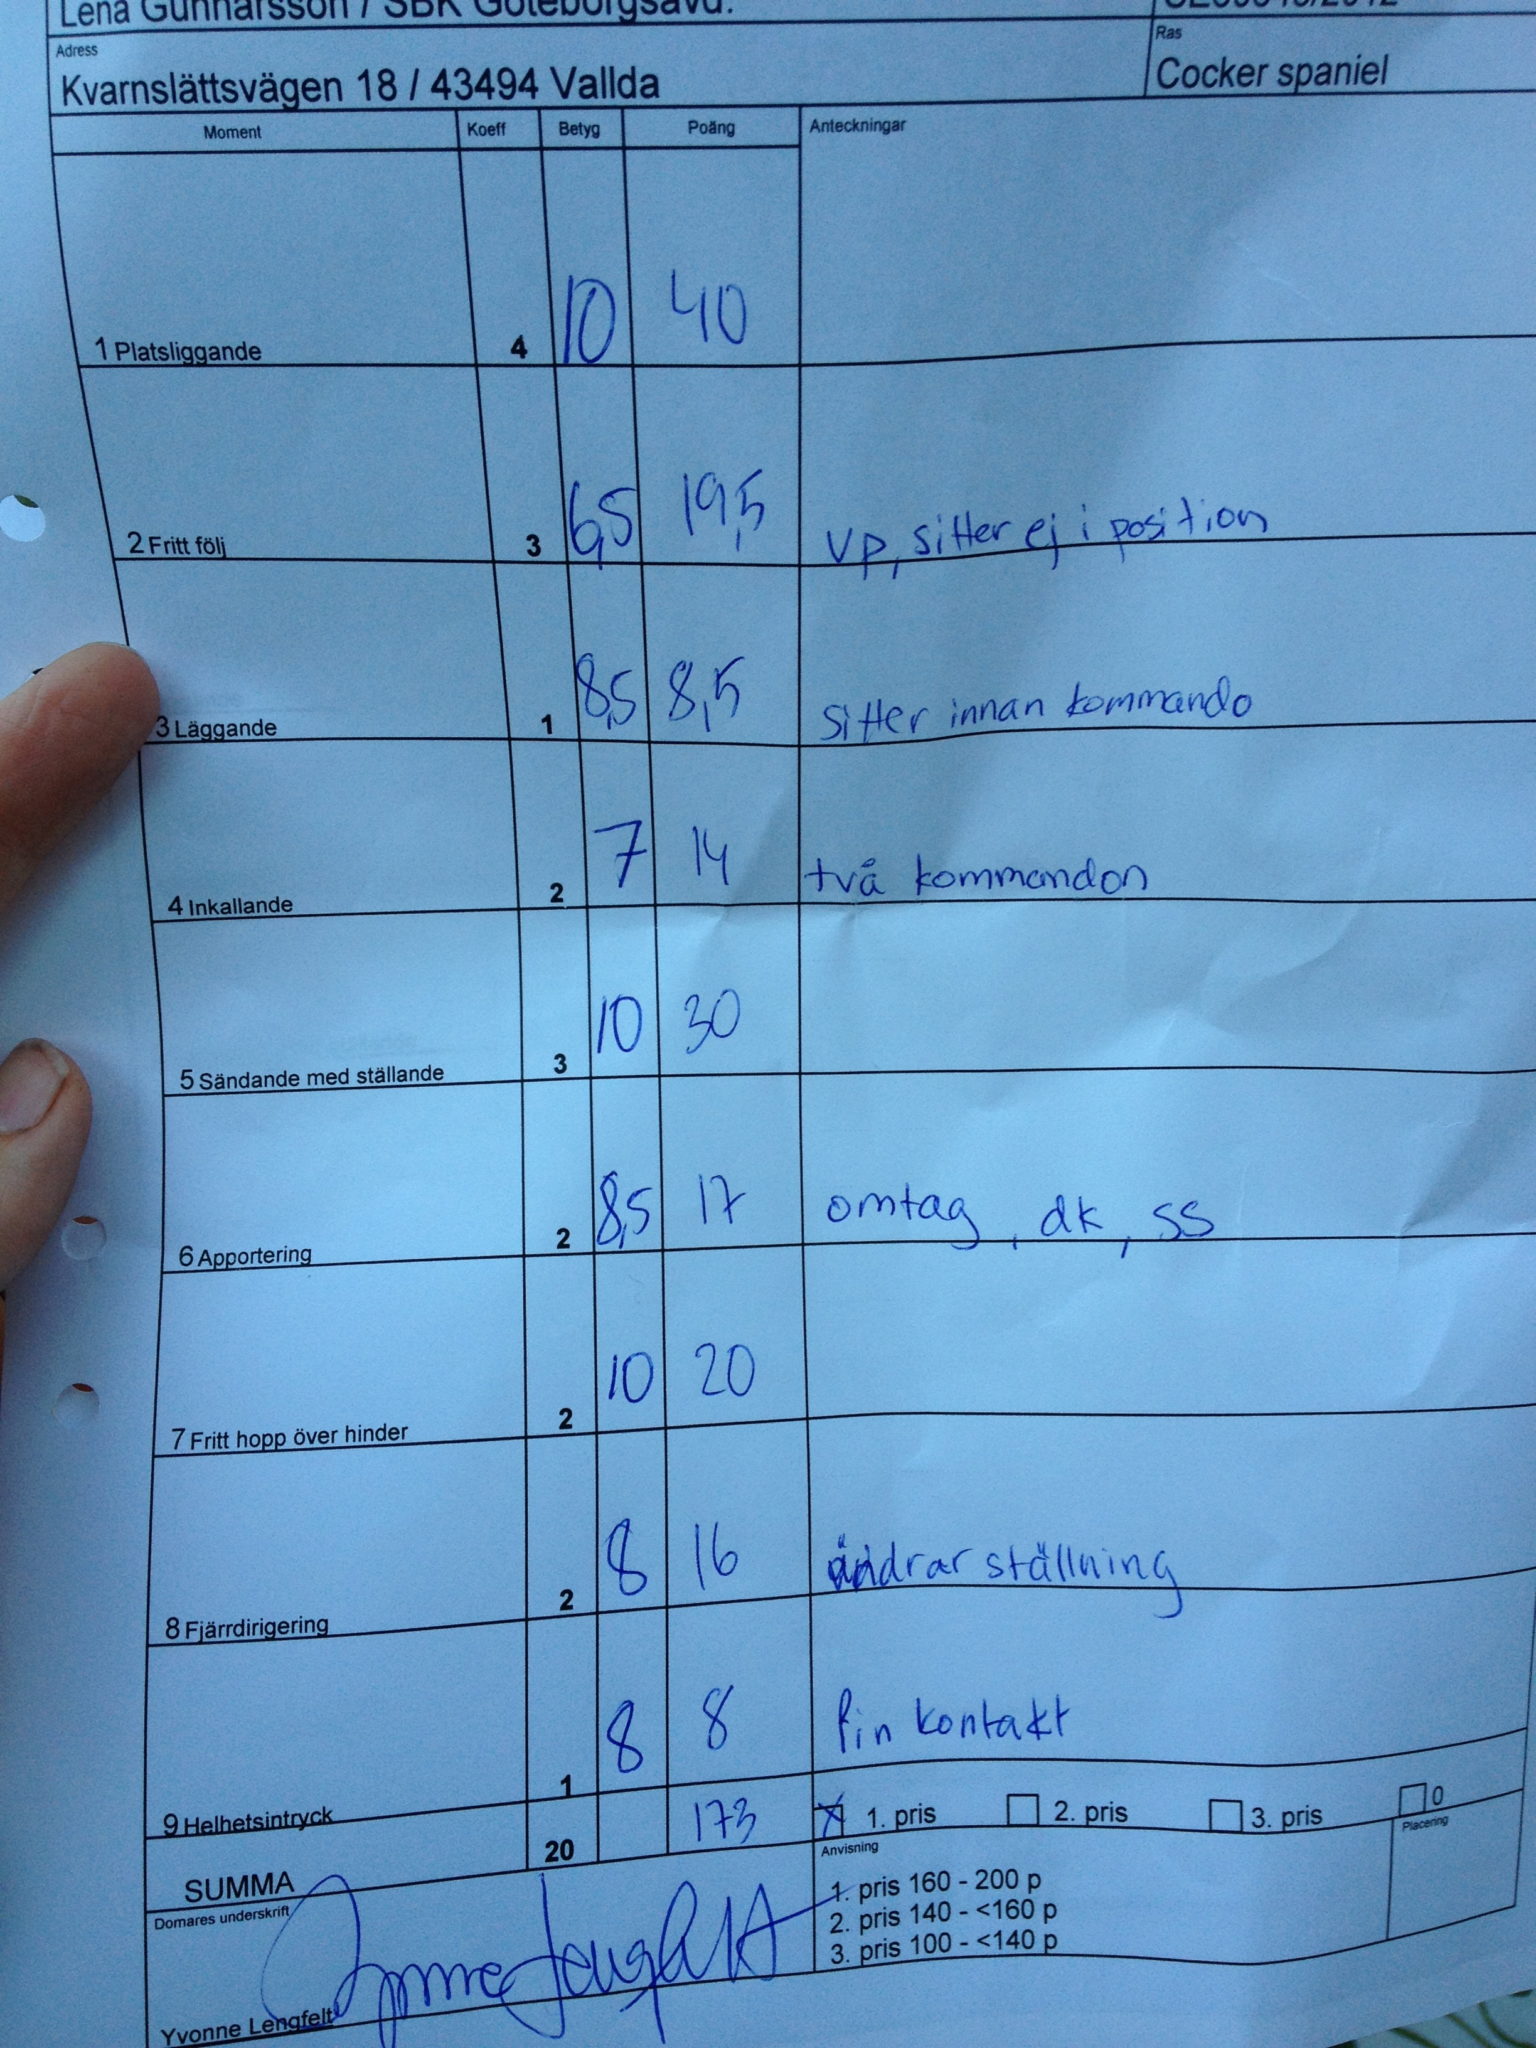 Lena Gunnarsson / SBK Göteborgsavd.
Adress
Ras
Kvarnslättsvägen 18 / 43494 Vallda
Cocker spaniel
Moment Koeff Betyg Poäng Anteckningar
1 Platsliggande 4 10 40
2 Fritt följ 3 6,5 19,5 vp, sitter ej i position
3 Läggande 1 8,5 8,5 sitter innan kommando
4 Inkallande 2 7 14 två kommandon
5 Sändande med ställande 3 10 30
6 Apportering 2 8,5 17 omtag, dk, ss
7 Fritt hopp över hinder 2 10 20
8 Fjärrdirigering 2 8 16 ändrar ställning
9 Helhetsintryck 1 8 8 fin kontakt
SUMMA 20 173 X 1. pris 2. pris 3. pris 0
Domares underskrift
Anvisning
Placering
1. pris 160 - 200 p
2. pris 140 - <160 p
3. pris 100 - <140 p
Yvonne Lengfelt